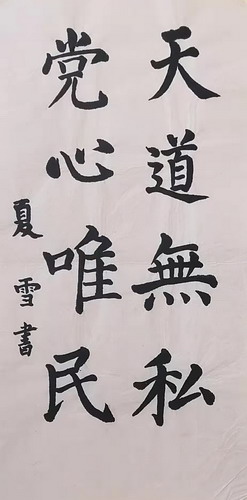 天道無私
党心唯民
夏雪書